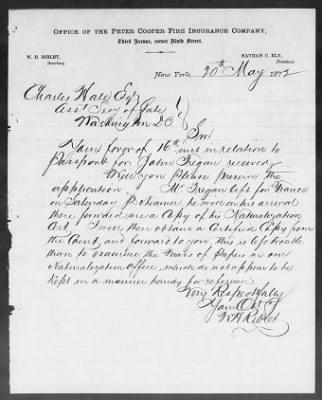 OFFICE OF THE PETER COOPER FIRE INSURANCE COMPANY,
Third Avenue, corner Ninth Street.
W. H. RIBLET,
Secretary
NATHAN C. ELY,
President
New York, 20th May 1872
Charles Hale Esq
Asst Secy of State
Washington DC
Sir
Yours favor of 16th inst in relation to
Passport for John Tregan received
Will you Please preserve the
application. Mr Tregan left for France
on Saturday P. Steamer, he will on his arrival
there forward me a Copy of his Naturalization
Act, I will then obtain a Certified Copy from
the Court, and forward to you, this is less trouble
than to examine the Mass of Papers in our
Naturalization Office, which do not appear to be
kept in a manner handy for reference
Very Respectfully
Your Obt St
W H Riblet